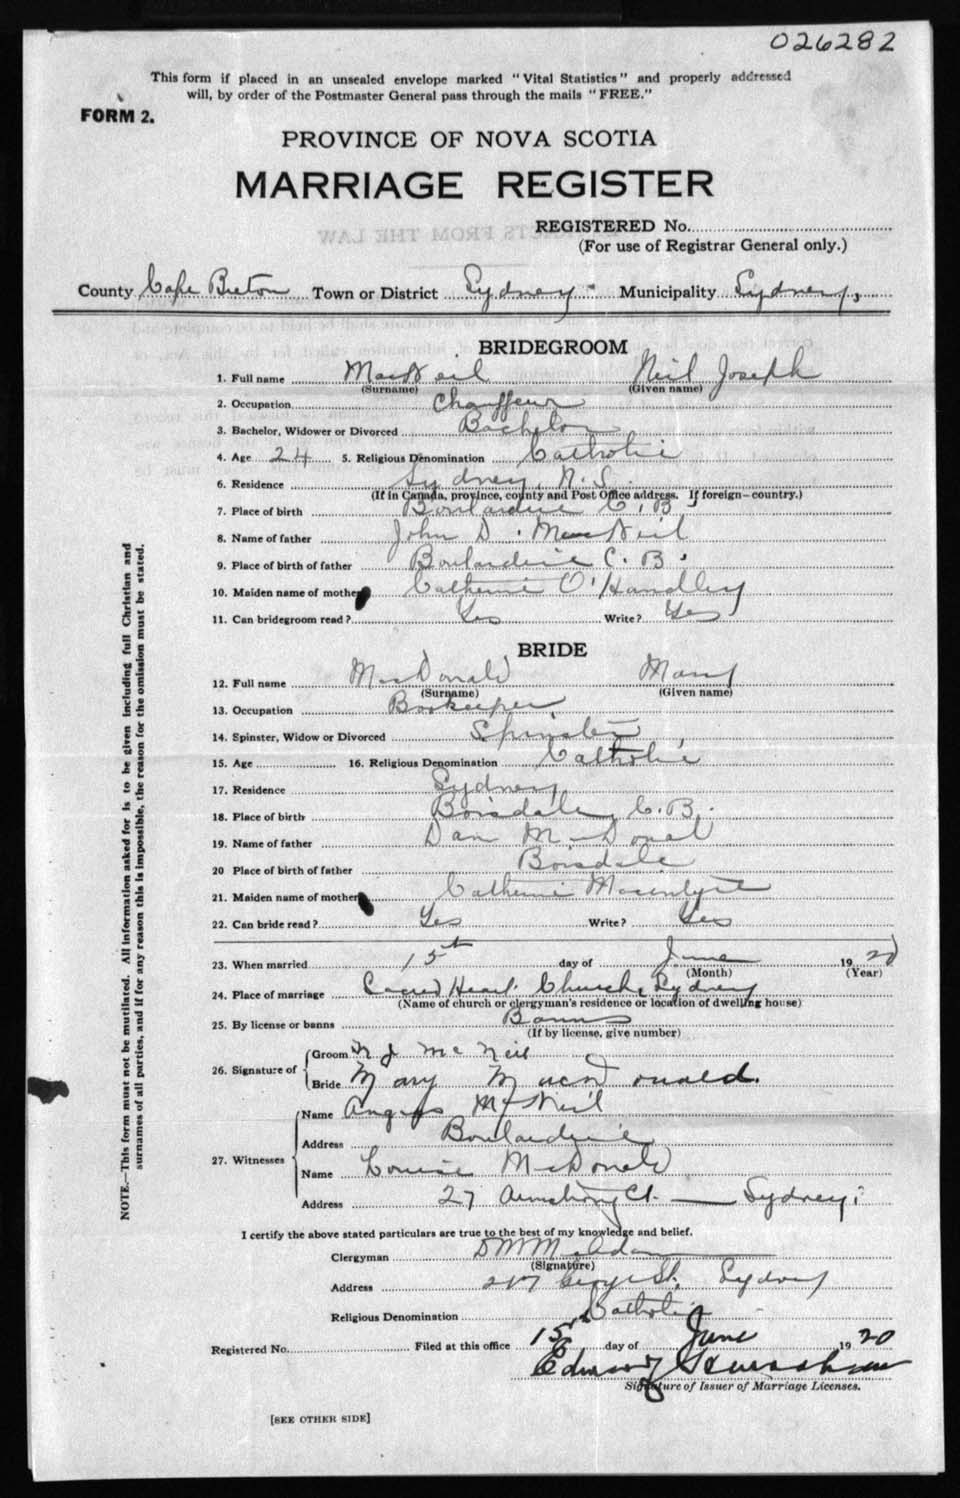 026282
This form if placed in an unsealed envelope marked "Vital Statistics" and properly addressed
will, by order of the Postmaster General pass through the mails "FREE."
FORM 2.
PROVINCE OF NOVA SCOTIA
MARRIAGE REGISTER
REGISTERED No.
(For use of Registrar General only.)
County Cape Breton Town or District Sydney Municipality Sydney,
BRIDEGROOM
1. Full name MacNeil Neil Joseph
(Surname) (Given name)
2. Occupation Chauffeur
3. Bachelor, Widower or Divorced Bachelor
4. Age 24 5. Religious Denomination Catholic
6. Residence Sydney, N.S.
(If in Canada, province, county and Post Office address. If foreign-country.)
7. Place of birth Boulardrie C.B
8. Name of father John D. MacNeil
9. Place of birth of father Boulardrie C.B.
10. Maiden name of mother Catherine O'Handley
11. Can bridegroom read? Yes Write? Yes
BRIDE
12. Full name MacDonald Mary
(Surname) (Given name)
13. Occupation Bookeeper
14. Spinster, Widow or Divorced Spinster
15. Age 16. Religious Denomination Catholic
17. Residence Sydney
18. Place of birth Boisdale, C.B.
19. Name of father Dan McDonal
20 Place of birth of father Boisdale
21. Maiden name of mother Catherine Macintyre
22. Can bride read? Yes Write? Yes
23. When married 15th day of June 1920
(Month) (Year)
24. Place of marriage Sacred Heart Church, Sydney
(Name of church or clergyman's residence or location of dwelling house)
25. By license or banns Banns
(If by license, give number)
26. Signature of Groom N J McNeil
Bride Mary Macdonald.
27. Witnesses Name Angus McNeil
Address Boulardrie
Name Louise McDonald
Address 27 Armstrong Ct. — Sydney
I certify the above stated particulars are true to the best of my knowledge and belief.
Clergyman D M McAdam
(Signature)
Address George St. Sydney
Religious Denomination Catholic
Registered No. Filed at this office 15th day of June 1920
Edward
Signature of Issuer of Marriage Licenses.
[SEE OTHER SIDE]
NOTE.—This form must not be mutilated. All information asked for is to be given including full Christian and
surnames of all parties, and if for any reason this is impossible, the reason for the omission must be stated.